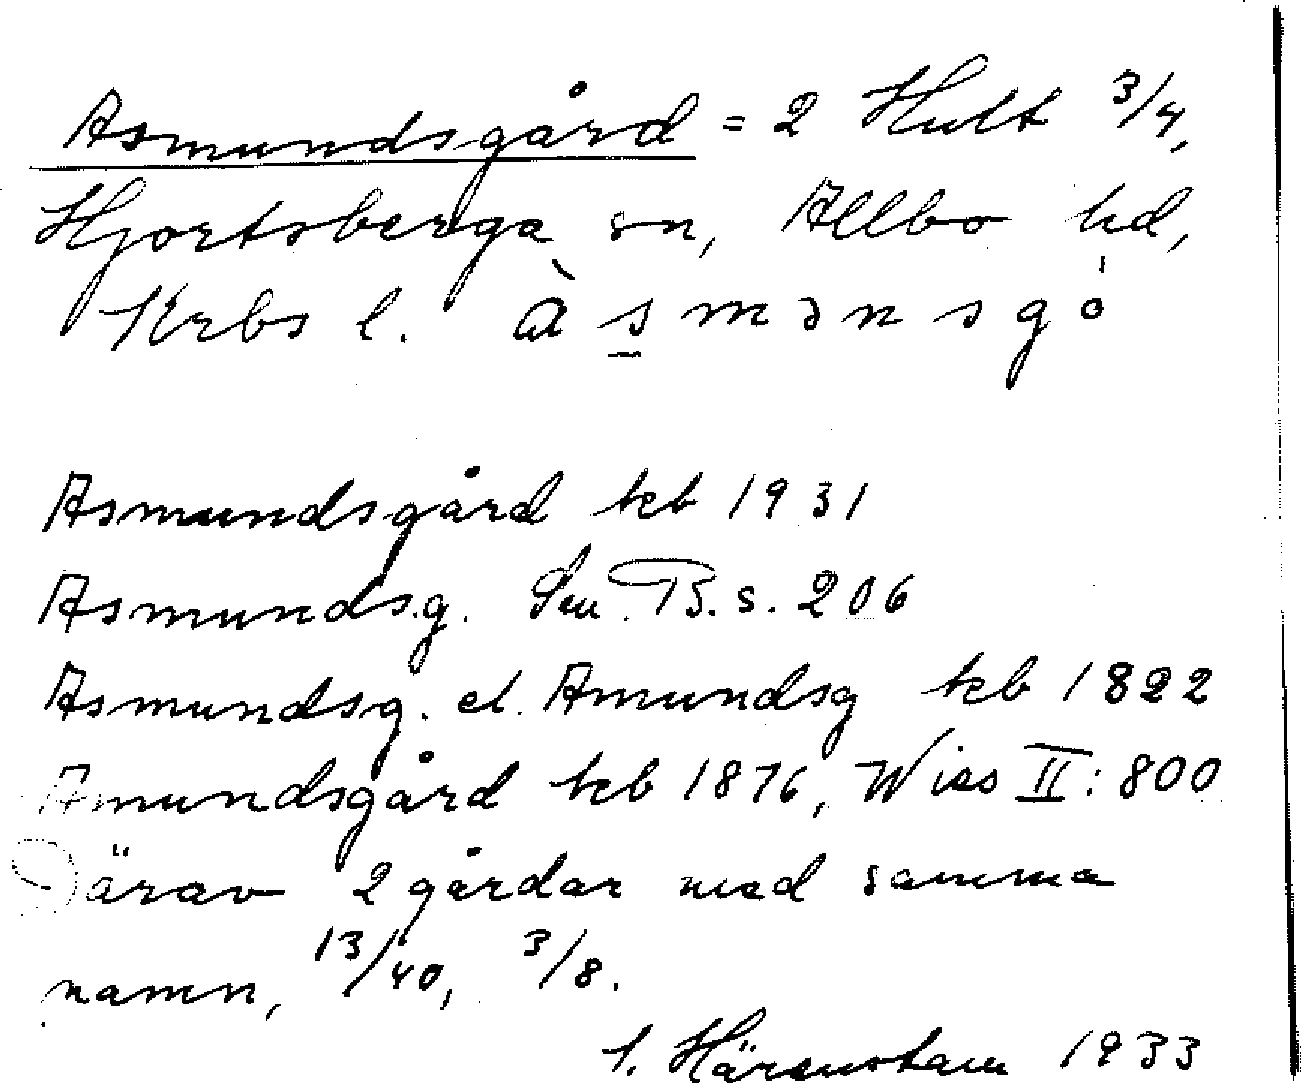 Asmundsgård = 2 Hult 3/4,
Hjortsberga sn, Allbo hd,
Krbs l. àsmənsgó
Asmundsgård kb 1931
Asmundsg. Sen. TB. s. 206
Asmundsg. el. Amundsg kb 1822
Amundsgård kb 1876, Wies II: 800
Därav 2 gårdar med samma
namn, 13/40, 3/8.
1933